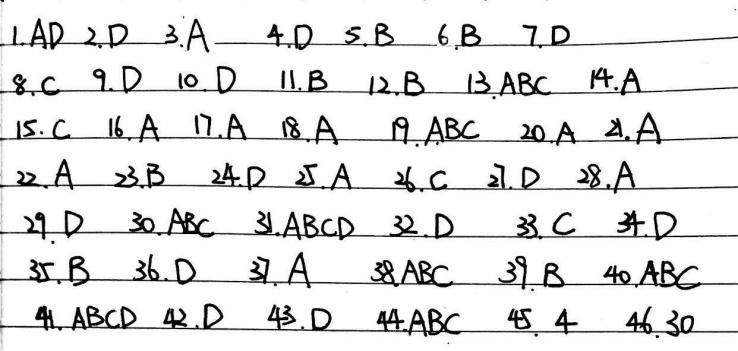 1.AD 2.D 3.A 4.D 5.B 6.B 7.D
8.C 9.D 10.D 11.B 12.B 13.ABC 14.A
15.C 16.A 17.A 18.A 19.ABC 20.A 21.A
22.A 23.B 24.D 25.A 26.C 27.D 28.A
29.D 30.ABC 31.ABCD 32.D 33.C 34.D
35.B 36.D 37.A 38.ABC 39.B 40.ABC
41.ABCD 42.D 43.D 44.ABC 45.4 46.30